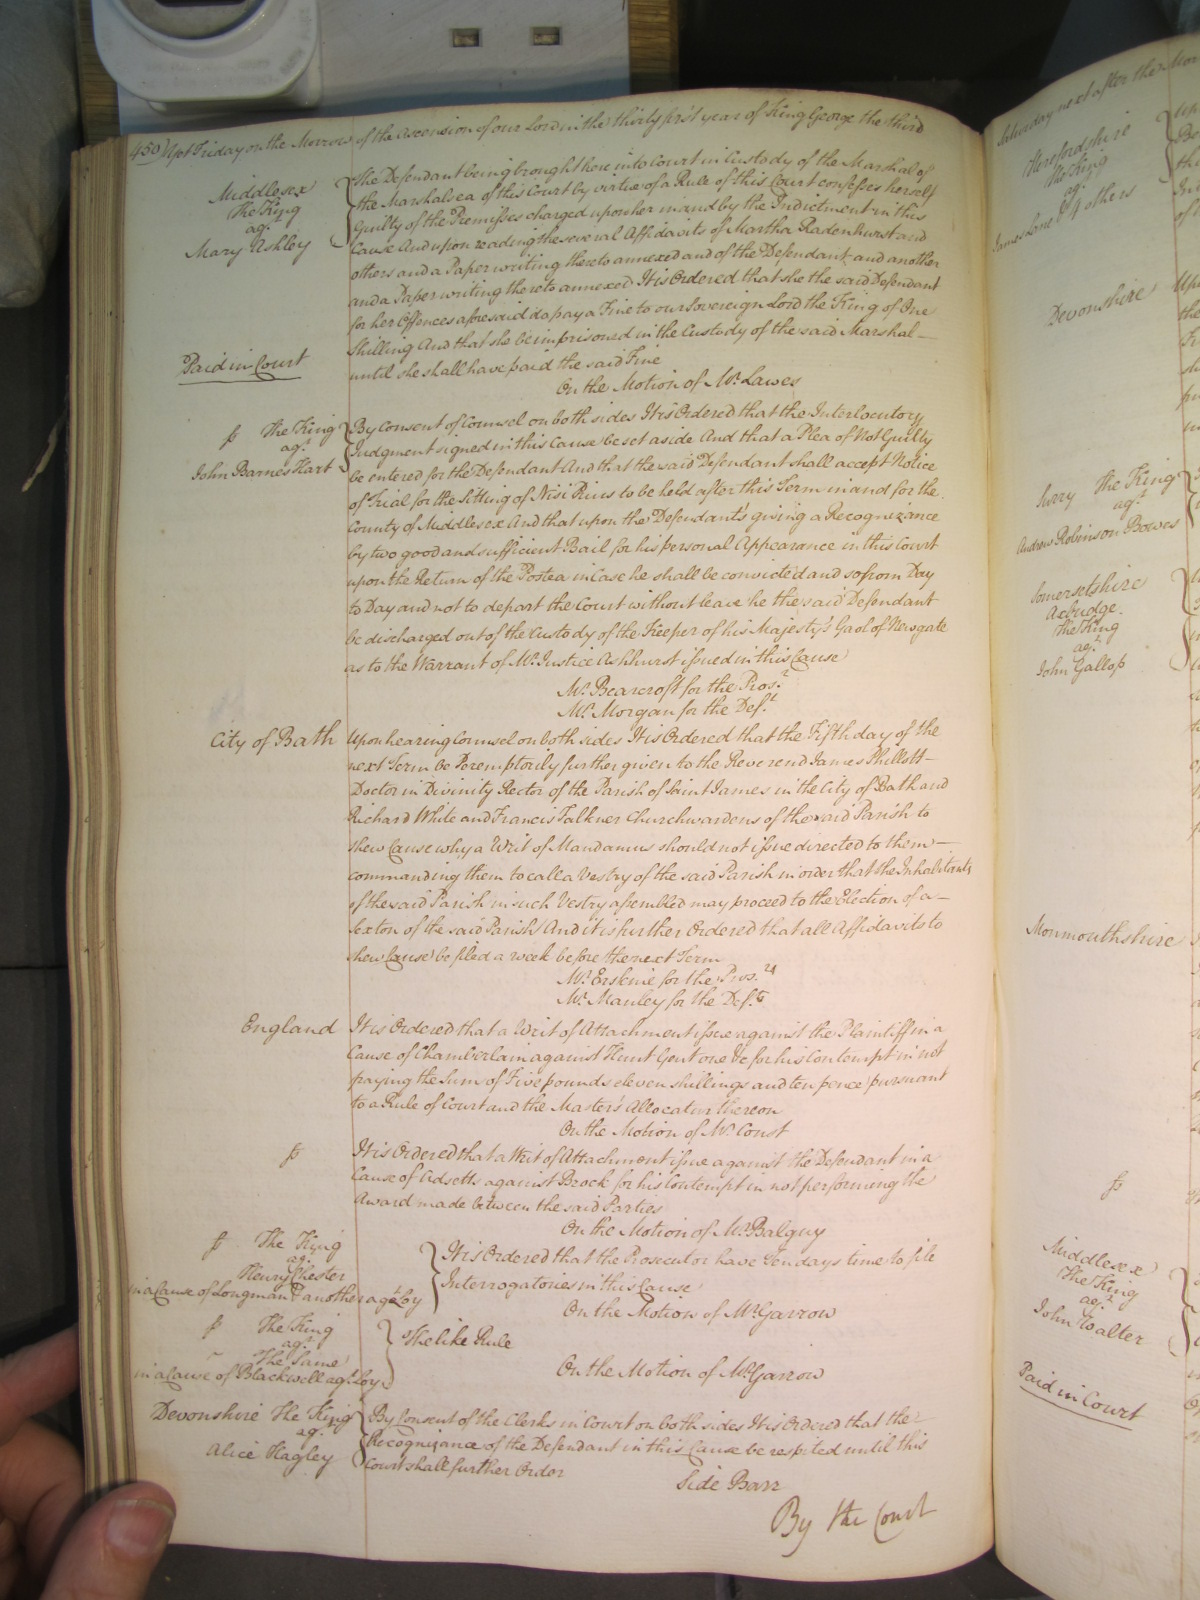 450 Yet Friday on the Morrow of the Ascension of our Lord in the thirty first year of King George the third
Middlesex
The King
agt.
Mary Ashley
The Defendant being brought here into Court in Custody of the Marshal of
the Marshalsea of this Court by virtue of a Rule of this Court confesses herself
Guilty of the Premisses charged upon her in and by the Indictment in this
Cause And upon reading the several Affidavits of Martha Radenhurst and
others and a Paper writing thereto annexed and of the Defendant and another
and a Paper writing thereto annexed It is Ordered that she the said Defendant
for her Offences aforesaid do pay a Fine to our Sovereign Lord the King of One
Shilling And that she be imprisoned in the Custody of the said Marshal
until she shall have paid the said Fine
Paid in Court
On the Motion of Mr. Lawes
The King
agt.
John Barnes Hart
By Consent of Counsel on both sides It is Ordered that the Interlocutory
Judgment signed in this Cause be set aside And that a Plea of Not Guilty
be entered for the Defendant And that the said Defendant shall accept Notice
of Trial for the Sitting of Nisi Prius to be held after this Term in and for the
County of Middlesex And that upon the Defendant's giving a Recognizance
by two good and sufficient Bail for his personal Appearance in this Court
upon the Return of the Postea in Case he shall be convicted and so from Day
to Day and not to depart the Court without leave he the said Defendant
be discharged out of the Custody of the Keeper of his Majesty's Gaol of Newgate
as to the Warrant of Mr. Justice Ashhurst issued in this Cause
Mr. Bearcroft for the Pros.r
Mr. Morgan for the Def.t
City of Bath
Upon hearing Counsel on both sides It is Ordered that the Fifth day of the
next Term be Peremptorily further given to the Reverend James Phillott
Doctor in Divinity Rector of the Parish of Saint James in the City of Bath and
Richard White and Francis Falkner Churchwardens of the said Parish to
shew Cause why a Writ of Mandamus should not issue directed to them
commanding them to call a Vestry of the said Parish in order that the Inhabitants
of the said Parish in such Vestry assembled may proceed to the Election of a
Sexton of the said Parish And it is further Ordered that all Affidavits to
shew Cause be filed a week before the next Term
Mr. Erskine for the Pros.rs
Mr. Manley for the Def.ts
England
It is Ordered that a Writ of Attachment issue against the Plaintiff in a
Cause of Chamberlain against Hunt Gent one &c for his Contempt in not
paying the Sum of Five pounds eleven shillings and ten pence pursuant
to a Rule of Court and the Master's Allocatur thereon
On the Motion of Mr. Const
It is Ordered that a Writ of Attachment issue against the Defendant in a
Cause of Adsetts against Brock for his Contempt in not performing the
Award made between the said Parties
On the Motion of Mr. Balguy
The King
agt.
Henry Chester
in a Cause of Longman & another agt. Loy
It is Ordered that the Prosecutor have Ten days time to file
Interrogatories in this Cause
On the Motion of Mr. Garrow
The King
agt.
The Same
in a Cause of Blackwell agt. Loy
The like Rule
On the Motion of Mr. Garrow
Devonshire The King
agt.
Alice Hagley
By Consent of the Clerks in Court on both sides It is Ordered that the
Recognizance of the Defendant in this Cause be respited until this
Court shall further Order
Side Barr
By the Court
Saturday next after the Mor
Herefordshire
The King
agt.
James Lane & 4 others
Devonshire
Surry The King
agt.
Andrew Robinson Bowes
Somersetshire
Axbridge.
The King
agt.
John Gallop
Monmouthshire
Middlesex
The King
agt.
John Walter
Paid in Court